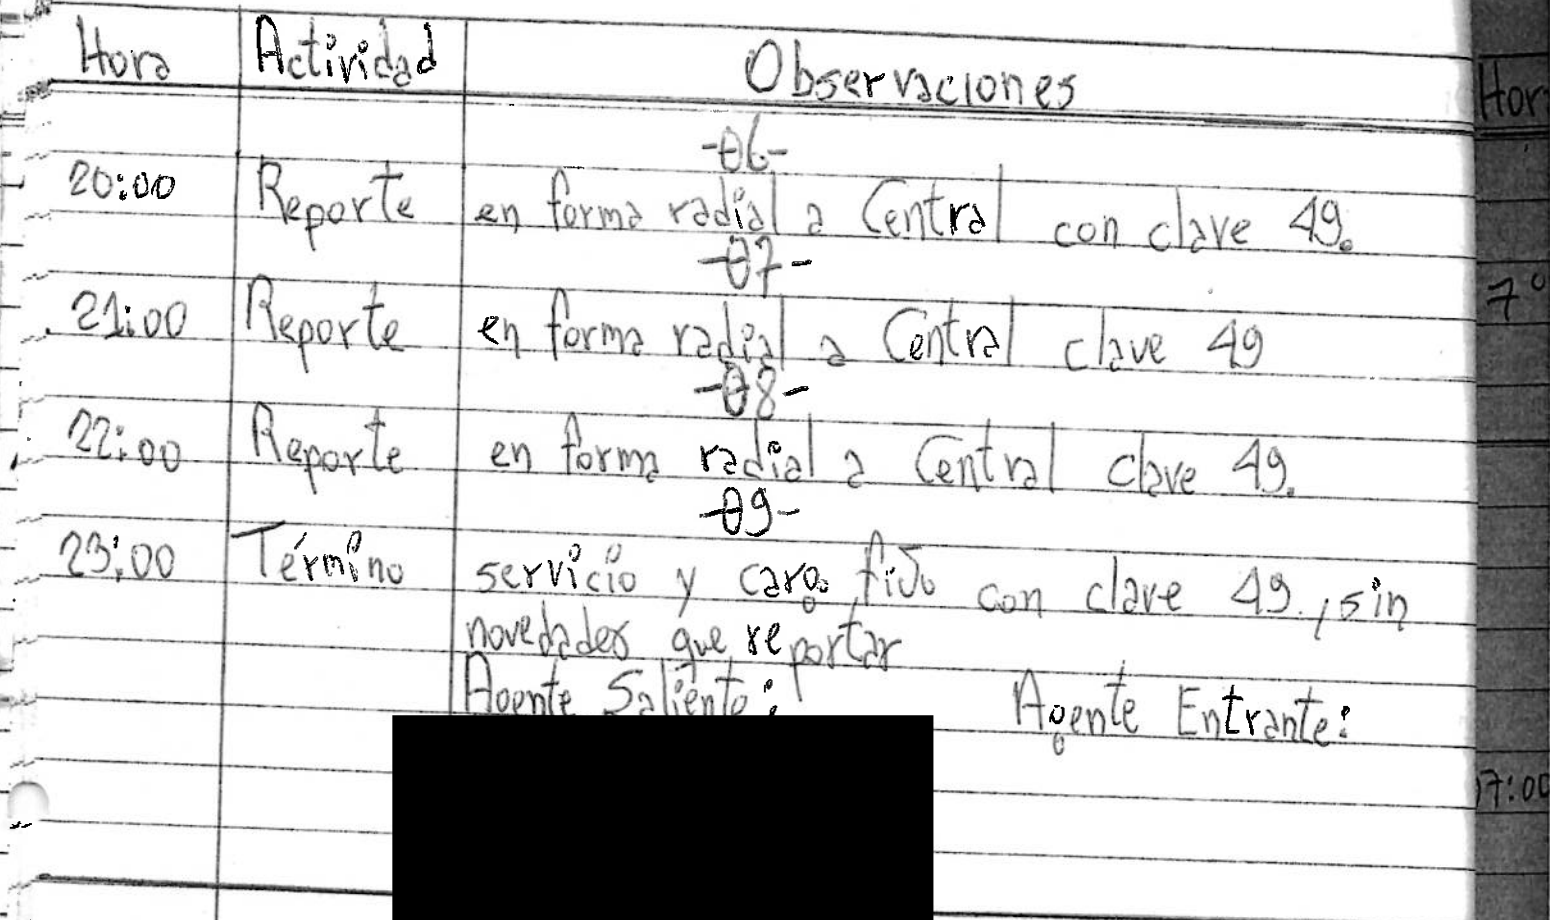 Hora Actividad Observaciones
-06-
20:00 Reporte en forma radial a Central con clave 49.
-07-
21:00 Reporte en forma radial a Central clave 49
-08-
22:00 Reporte en forma radial a Central clave 49.
-09-
23:00 Término servicio y cargo fijo con clave 49, sin
novedades que reportar
Agente Saliente: Agente Entrante:
Hor
7°
17:00